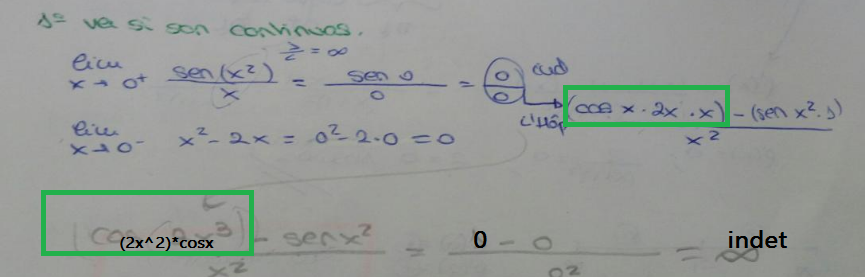 1º ver si son continuas.
lim x→0⁺ sen(x²)/x = sen 0/0 = 0/0 ind
L'Hôp (cos x · 2x · x) - (sen x² · 1)/x²
lim x→0⁻ x² - 2x = 0² - 2·0 = 0
(2x^2)*cosx - sen x²/x² = 0 - 0/0² = ∞ indet